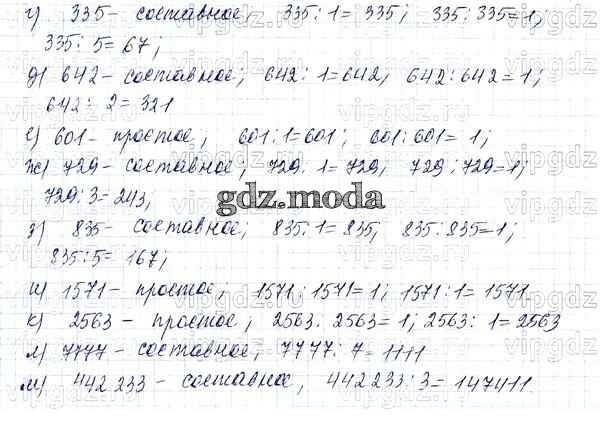 г) 335 - составное, 335 : 1 = 335; 335 : 335 = 1;
335 : 5 = 67;
д) 642 - составное; 642 : 1 = 642, 642 : 642 = 1;
642 : 2 = 321
е) 601 - простое, 601 : 1 = 601; 601 : 601 = 1;
ж) 729 - составное, 729 : 1 = 729, 729 : 729 = 1;
729 : 3 = 243,
gdz.moda
з) 835 - составное; 835 : 1 = 835; 835 : 835 = 1;
835 : 5 = 167;
и) 1571 - простое; 1571 : 1571 = 1; 1571 : 1 = 1571
к) 2563 - простое, 2563 : 2563 = 1; 2563 : 1 = 2563
л) 7777 - составное, 7777 : 7 = 1111
м) 442 233 - составное, 442 233 : 3 = 147411.
vipgdz.ru